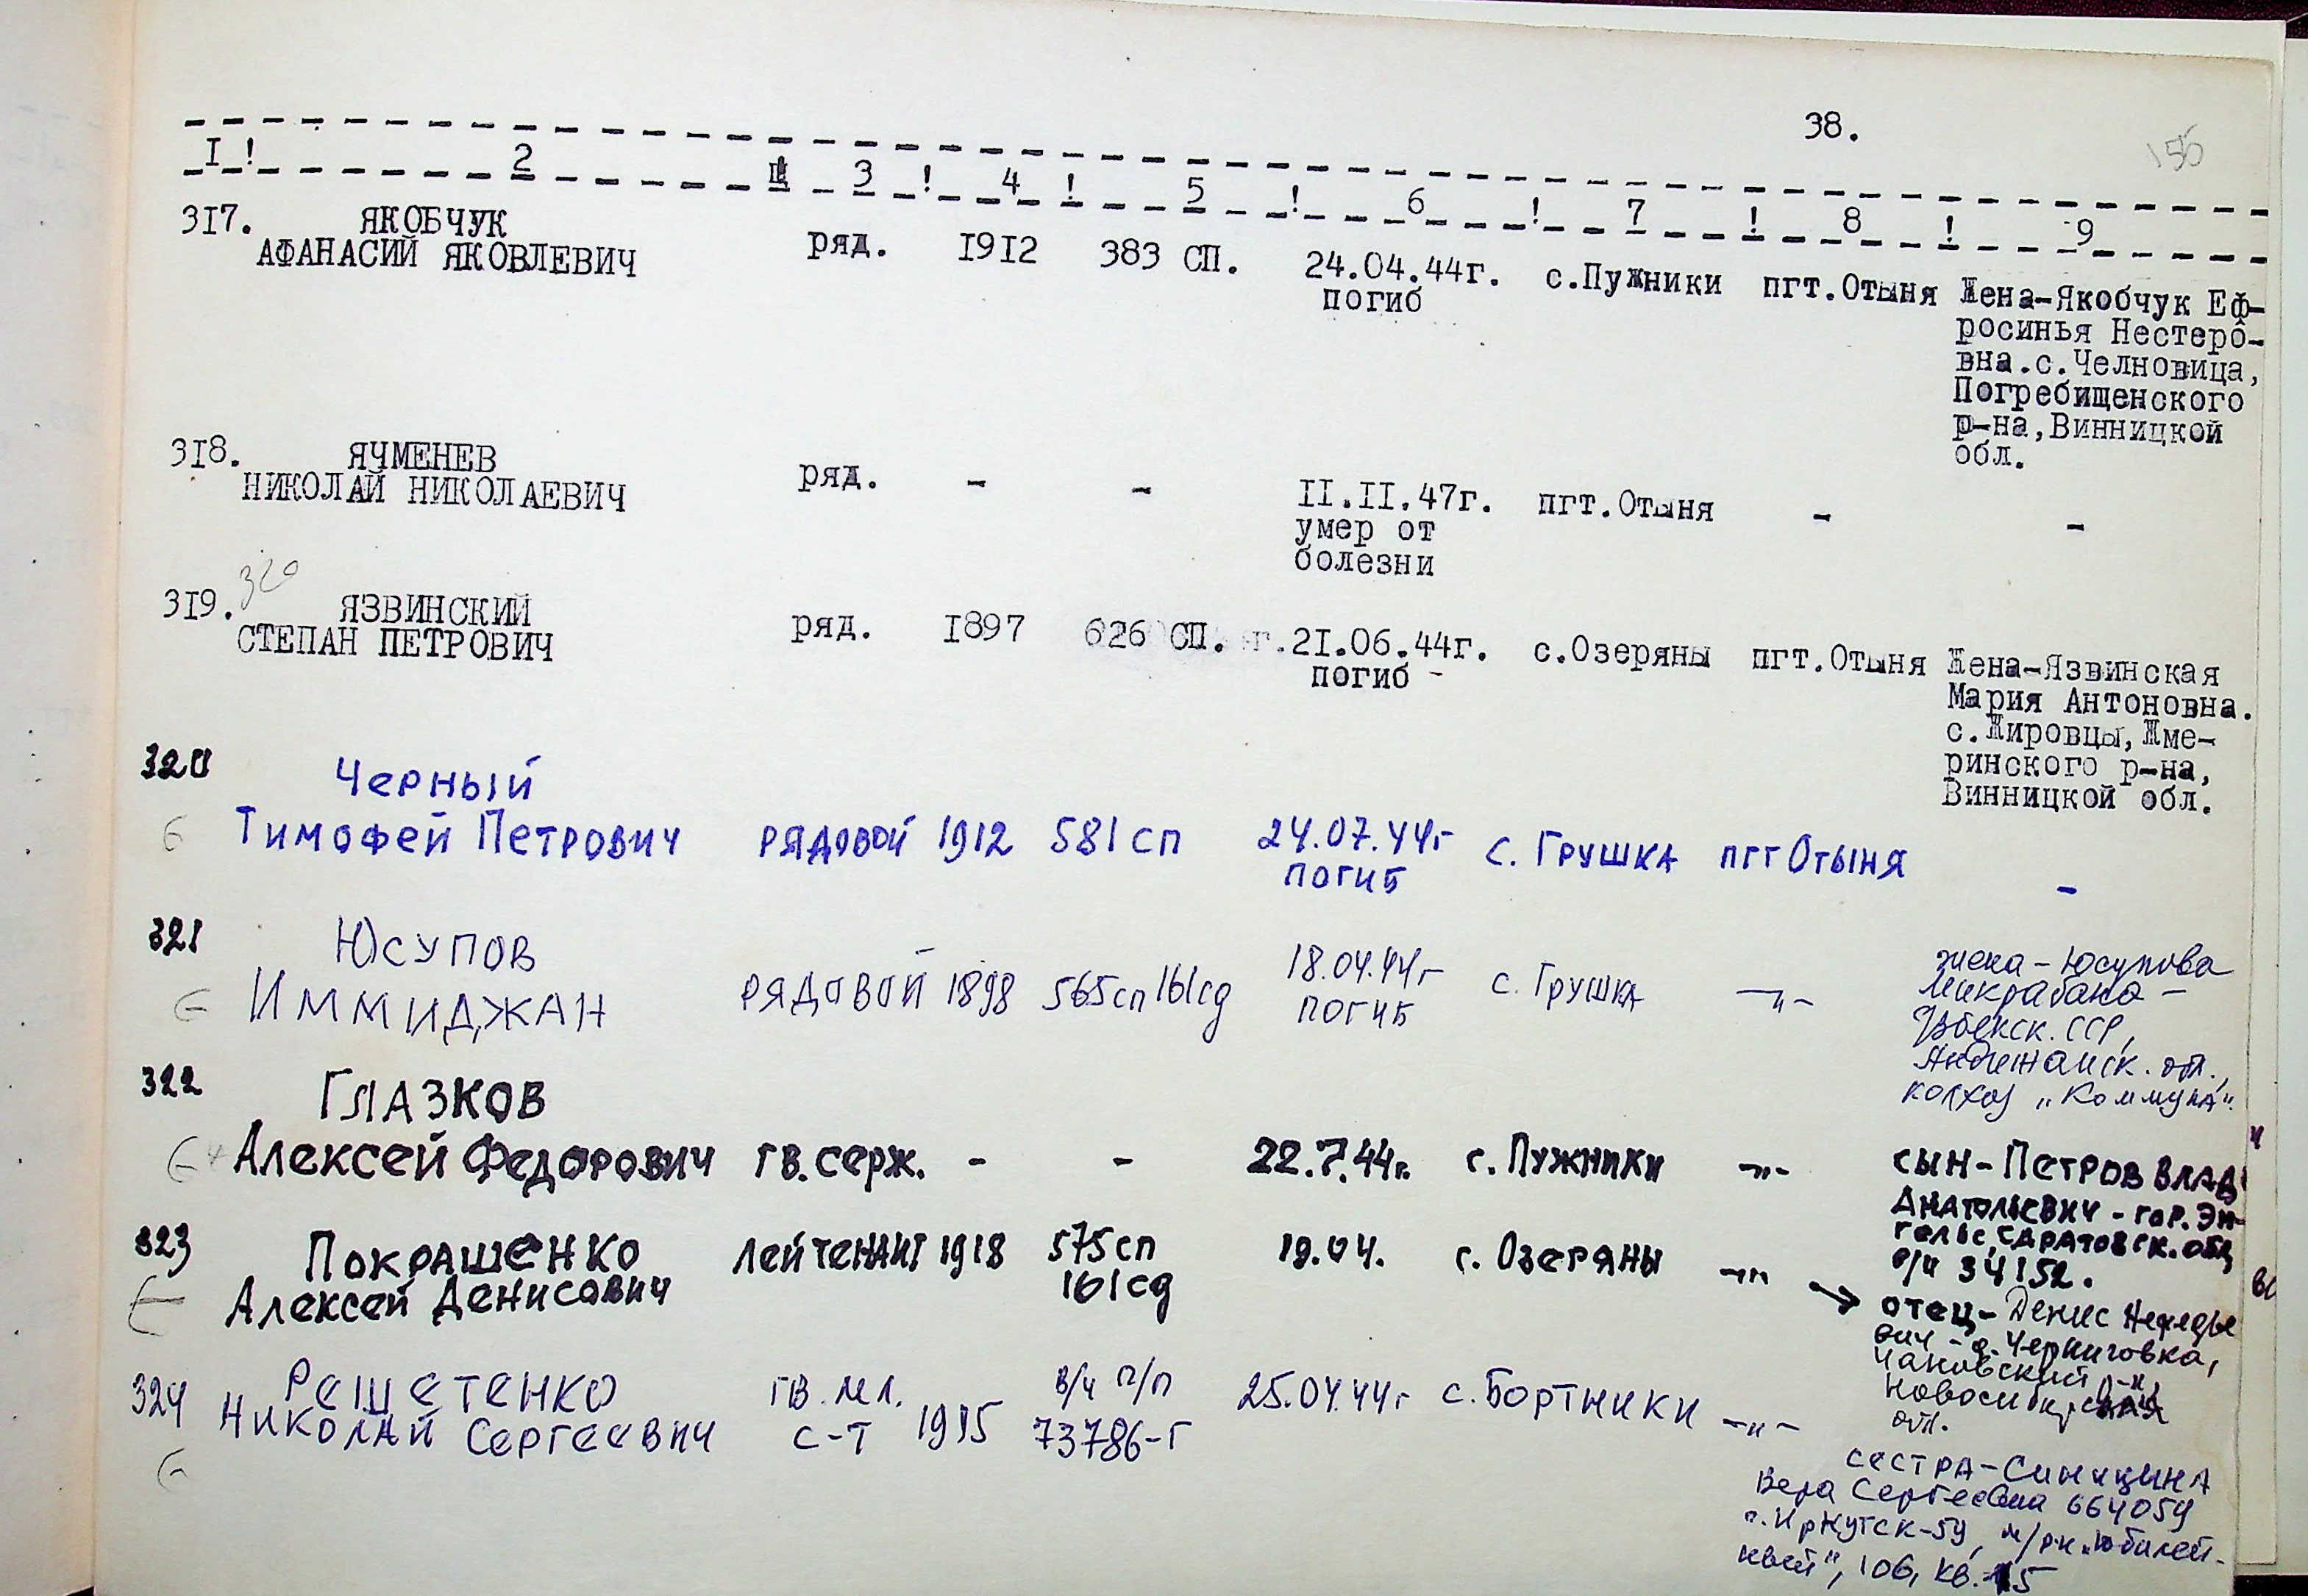 38.
155
I ! 2 ! 3 ! 4 ! 5 ! 6 ! 7 ! 8 ! 9
317. ЯКОБЧУК
АФАНАСИЙ ЯКОВЛЕВИЧ ряд. I9I2 383 СП. 24.04.44г. с.Пужники пгт.Отыня Жена-Якобчук Еф-
погиб
росинья Нестеро-
вна.с.Челновица,
Погребищенского
р-на,Винницкой
обл.
3I8. ЯЧМЕНЕВ
НИКОЛАЙ НИКОЛАЕВИЧ ряд. - - II.II.47г. пгт.Отыня - -
умер от
болезни
320
3I9. ЯЗВИНСКИЙ
СТЕПАН ПЕТРОВИЧ ряд. I897 626 СП. г.2I.06.44г. с.Озеряны пгт.Отыня Жена-Язвинская
погиб -
Мария Антоновна.
с.Жировцы,Жме-
ринского р-на,
Винницкой обл.
320 Черный
Тимофей Петрович рядовой 1912 581 сп 24.07.44г с. Грушка пгт Отыня -
погиб
321 Юсупов
Иммиджан рядовой 1898 565сп 161сд 18.04.44г с. Грушка -"-
погиб
жена - Юсупова
Узбекск. ССР,
Андижанск. обл.,
колхоз "Коммуна".
322 Глазков
Алексей Федорович гв. серж. - - 22.7.44г. с. Пужники -"- сын - Петров Влад
Анатольевич - гор. Эн-
гельс, Саратовск. обл,
в/ч 34152.
323 Покрашенко лейтенант 1918 575сп 19.04. с. Озеряны -"-
Алексей Денисович 161сд
→ отец - Денис
вич - д. Черниговка,
Новосибирская
обл.
324 Решетенко гв. мл. в/ч п/п 25.04.44г с. Бортники -"-
Николай Сергеевич с-т 1915 73786-Г
сестра - Синицина
Вера Сергеевна 664059
г. Иркутск-59, м/рн "Юбилей-
ный", 106, кв. 15